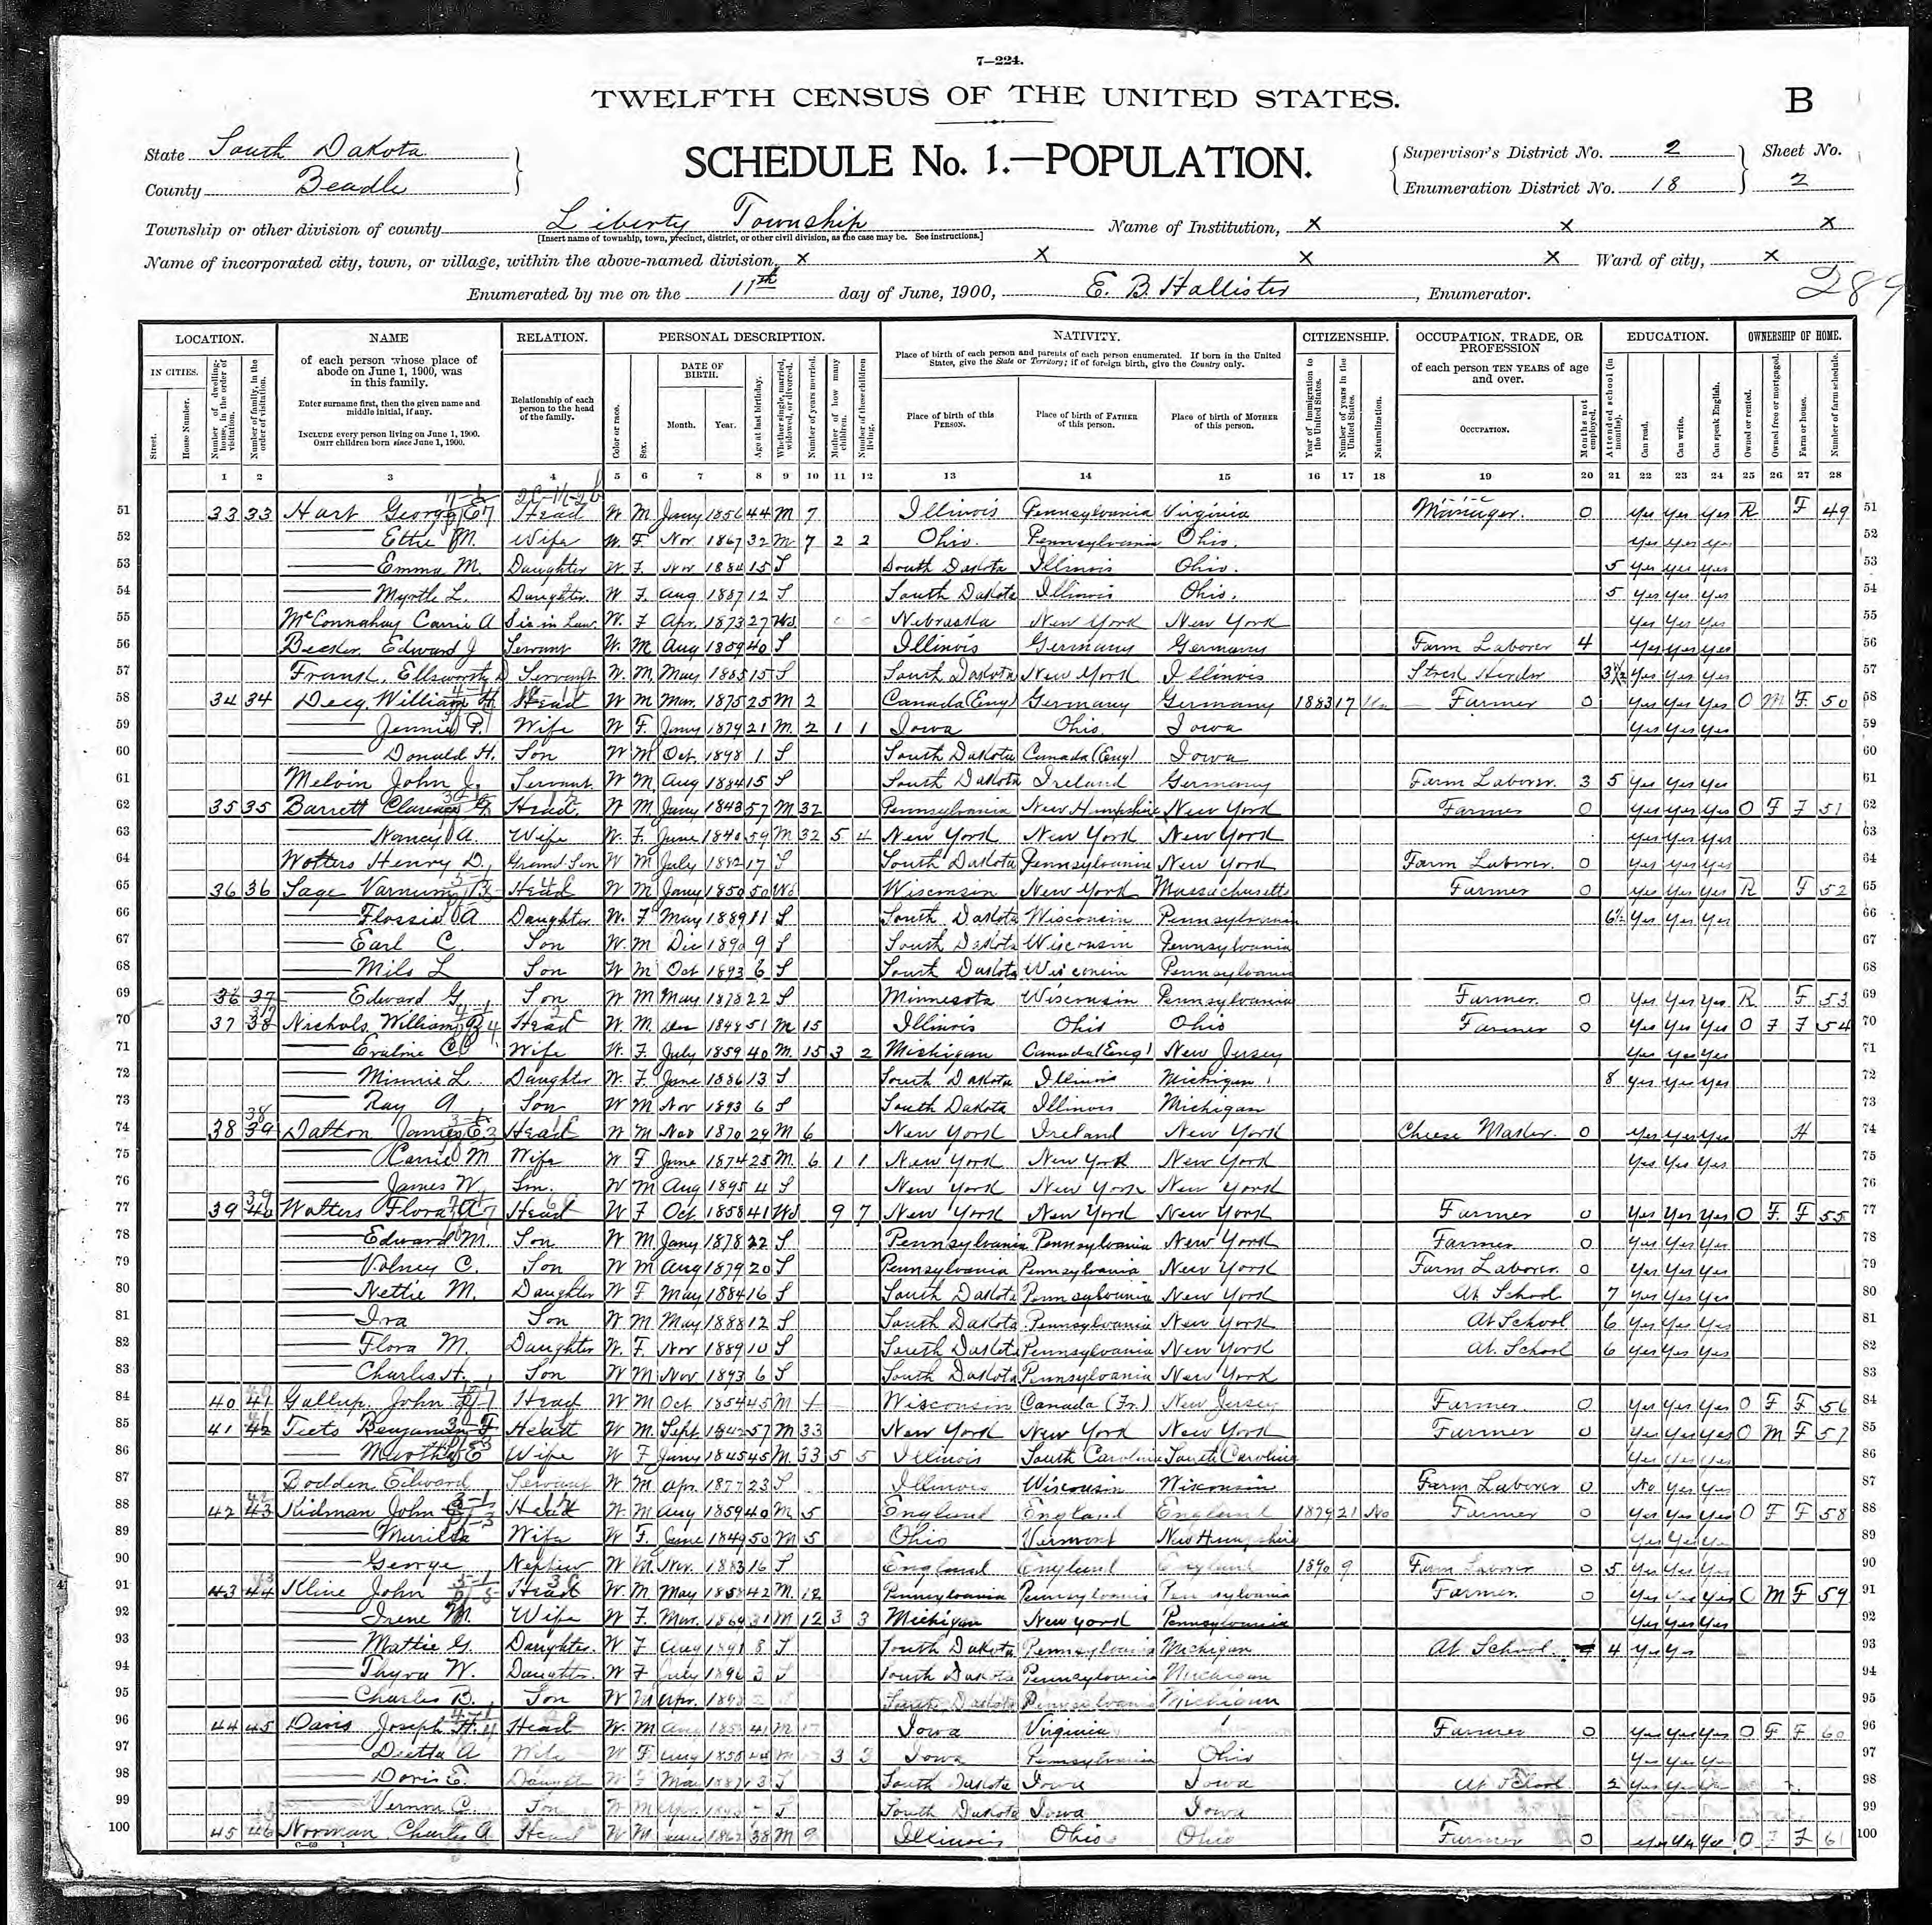 7—224.
TWELFTH CENSUS OF THE UNITED STATES.
B
State South Dakota
County Beadle
SCHEDULE No. 1.—POPULATION.
Supervisor's District No. 2
Enumeration District No. 18
Sheet No. 2
Township or other division of county Liberty Township
[Insert name of township, town, precinct, district, or other civil division, as the case may be. See instructions.]
Name of Institution, X X X
Name of incorporated city, town, or village, within the above-named division, X X X X Ward of city, X
289
Enumerated by me on the 11th day of June, 1900, E. B. Hallister, Enumerator.
LOCATION. NAME RELATION. PERSONAL DESCRIPTION. NATIVITY. CITIZENSHIP. OCCUPATION, TRADE, OR PROFESSION EDUCATION. OWNERSHIP OF HOME.
IN CITIES.
Street.
House Number.
Number of dwelling-house, in the order of visitation.
Number of family, in the order of visitation.
of each person whose place of abode on June 1, 1900, was in this family.
Enter surname first, then the given name and middle initial, if any.
INCLUDE every person living on June 1, 1900.
OMIT children born since June 1, 1900.
Relationship of each person to the head of the family.
Color or race.
Sex.
DATE OF BIRTH.
Month. Year.
Age at last birthday.
Whether single, married, widowed, or divorced.
Number of years married.
Mother of how many children.
Number of these children living.
Place of birth of each person and parents of each person enumerated. If born in the United States, give the State or Territory; if of foreign birth, give the Country only.
Place of birth of this PERSON.
Place of birth of FATHER of this person.
Place of birth of MOTHER of this person.
Year of immigration to the United States.
Number of years in the United States.
Naturalization.
of each person TEN YEARS of age and over.
OCCUPATION.
Months not employed.
Attended school (in months).
Can read.
Can write.
Can speak English.
Owned or rented.
Owned free or mortgaged.
Farm or house.
Number of farm schedule.
1 2 3 4 5 6 7 8 9 10 11 12 13 14 15 16 17 18 19 20 21 22 23 24 25 26 27 28
51 33 33 Hart George E Head W M Jany 1856 44 M 7 Illinois Pennsylvania Virginia Manager. 0 Yes Yes Yes R F 49 51
52 Ettie M. Wife W. F. Nov 1867 32 M. 7 2 2 Ohio. Pennsylvania Ohio. Yes Yes Yes 52
53 Emma M. Daughter W. F. Nov 1884 15 S South Dakota Illinois Ohio. 5 Yes Yes Yes 53
54 Myrtle L. Daughter. W F. Aug 1887 12 S South Dakota Illinois Ohio. 5 Yes Yes Yes 54
55 McConnahay Carrie A Sis in Law. W. F Apr. 1873 27 Wd. Nebraska New York New York Yes Yes Yes 55
56 Edward J Servant W. M Aug 1859 40 S Illinois Germany Germany Farm Laborer 4 Yes Yes Yes 56
57 Frank, Ellsworth D Servant W. M. May 1885 15 S South Dakota New York Illinois Stock Herder 3 1/2 Yes Yes Yes 57
58 34 34 Decq William H Head W M Mar. 1875 25 M 2 Canada (Eng) Germany Germany 1883 17 Farmer 0 Yes Yes Yes O M F. 50 58
59 Jennie P. Wife W F. Jany 1879 21 M. 2 1 1 Iowa Ohio. Iowa Yes Yes Yes 59
60 Donald H. Son W M Oct. 1898 1 S South Dakota Canada (Eng) Iowa 60
61 Melvin John J. Servant. W M. Aug 1884 15 S South Dakota Ireland Germany Farm Laborer. 3 5 Yes Yes Yes 61
62 35 35 Barrett Clarence Head. W M. Jany 1843 57 M 32 Pennsylvania New Hampshire New York Farmer 0 Yes Yes Yes O F F 51 62
63 Nancy A. Wife W. F. June 1840 59 M 32 5 4 New York New York New York Yes Yes Yes 63
64 Wolters Henry D. Grand Son W M July 1882 17 S South Dakota Pennsylvania New York Farm Laborer. 0 Yes Yes Yes 64
65 36 36 Sage Varnum Head W M Jany 1850 50 Wd Wisconsin New York Massachusetts Farmer 0 Yes Yes Yes R F 52 65
66 Flossie A Daughter W. F May 1889 11 S South Dakota Wisconsin Pennsylvania 6 1/2 Yes Yes Yes 66
67 Earl C. Son W. M Dec 1890 9 S South Dakota Wisconsin Pennsylvania 67
68 Milo L Son W M Oct 1893 6 S South Dakota Wisconsin Pennsylvania 68
69 36 37 Edward G. Son W M May 1878 22 S Minnesota Wisconsin Pennsylvania Farmer. 0 Yes Yes Yes R F. 53 69
70 37 38 Nichols William Head W. M. Dec 1848 51 M 15 Illinois Ohio Ohio Farmer 0 Yes Yes Yes O F F 54 70
71 Eveline C Wife W. F. July 1859 40 M. 15 3 2 Michigan Canada (Eng) New Jersey Yes Yes Yes 71
72 Minnie L. Daughter W. F. June 1886 13 S South Dakota Illinois Michigan 8 Yes Yes Yes 72
73 Ray A Son W M Nov 1893 6 S South Dakota Illinois Michigan 73
74 38 39 Dalton James E. Head W M Nov 1870 29 M 6 New York Ireland New York Cheese Maker. 0 Yes Yes Yes H 74
75 Carrie M Wife W F June 1874 25 M. 6 1 1 New York New York New York Yes Yes Yes 75
76 James W. Son. W M Aug 1895 4 S New York New York New York 76
77 39 40 Wolters Flora A Head W F Oct 1858 41 Wd 9 7 New York New York New York Farmer 0 Yes Yes Yes O F. F 55 77
78 Edward M. Son W M Jany 1878 22 S Pennsylvania Pennsylvania New York Farmer 0 Yes Yes Yes 78
79 Volney C. Son W M Aug 1879 20 S Pennsylvania Pennsylvania New York Farm Laborer. 0 Yes Yes Yes 79
80 Nettie M. Daughter W F May 1884 16 S South Dakota Pennsylvania New York At School 7 Yes Yes Yes 80
81 Ira Son W M May 1888 12 S South Dakota Pennsylvania New York At School 6 Yes Yes Yes 81
82 Flora M. Daughter W. F. Nov 1889 10 S South Dakota Pennsylvania New York At School 6 Yes Yes Yes 82
83 Charles H. Son W M Nov 1893 6 S South Dakota Pennsylvania New York 83
84 40 41 Gallup John Head W M Oct 1854 45 M Wisconsin Canada (Fr.) New Jersey Farmer 0 Yes Yes Yes O F F 56 84
85 41 42 Teets Benjamin F Head W M. Sept 1842 57 M 33 New York New York New York Farmer 0 Yes Yes Yes O M F 57 85
86 Martha E Wife W F Jany 1845 45 M. 33 5 5 Illinois South Carolina South Carolina Yes Yes Yes 86
87 Bodden Edward Servant W M Apr. 1877 23 S Illinois Wisconsin Wisconsin Farm Laborer 0 No Yes Yes 87
88 42 43 Kidman John Head W. M Aug 1859 40 M 5 England England England 1879 21 No Farmer 0 Yes Yes Yes O F F 58 88
89 Murilda Wife W F. June 1849 50 M 5 Ohio Vermont New Hampshire Yes Yes Yes 89
90 George Nephew W M. Nov. 1883 16 S England England England 1890 9 Farm Laborer 0 5 Yes Yes Yes 90
91 43 44 Kline John Head W. M May 1858 42 M. 12 Pennsylvania Pennsylvania Pennsylvania Farmer. 0 Yes Yes Yes O M F 59 91
92 Irene M. Wife W F. Mar. 1869 31 M 12 3 3 Michigan New York Pennsylvania Yes Yes Yes 92
93 Mattie G. Daughter. W F Aug 1891 8 S South Dakota Pennsylvania Michigan At School. 4 Yes Yes 93
94 Thyra W. Daughter. W F July 1896 3 S South Dakota Pennsylvania Michigan 94
95 Charles B. Son W M Apr. 1898 South Dakota Pennsylvania Michigan 95
96 44 45 Davis Joseph H. Head W. M 41 M Iowa Virginia Farmer 0 Yes Yes Yes O F F 60 96
97 Deetta A Wife W F Aug 3 3 Iowa Pennsylvania Ohio Yes Yes Yes 97
98 Doris E. Daughter South Dakota Iowa Iowa At School 2 Yes Yes 98
99 Vernon C. Son W M S South Dakota Iowa Iowa 99
100 45 46 Norman Charles A Head W M 1862 38 M 9 Illinois Ohio Ohio Farmer 0 Yes Yes Yes O F F 61 100